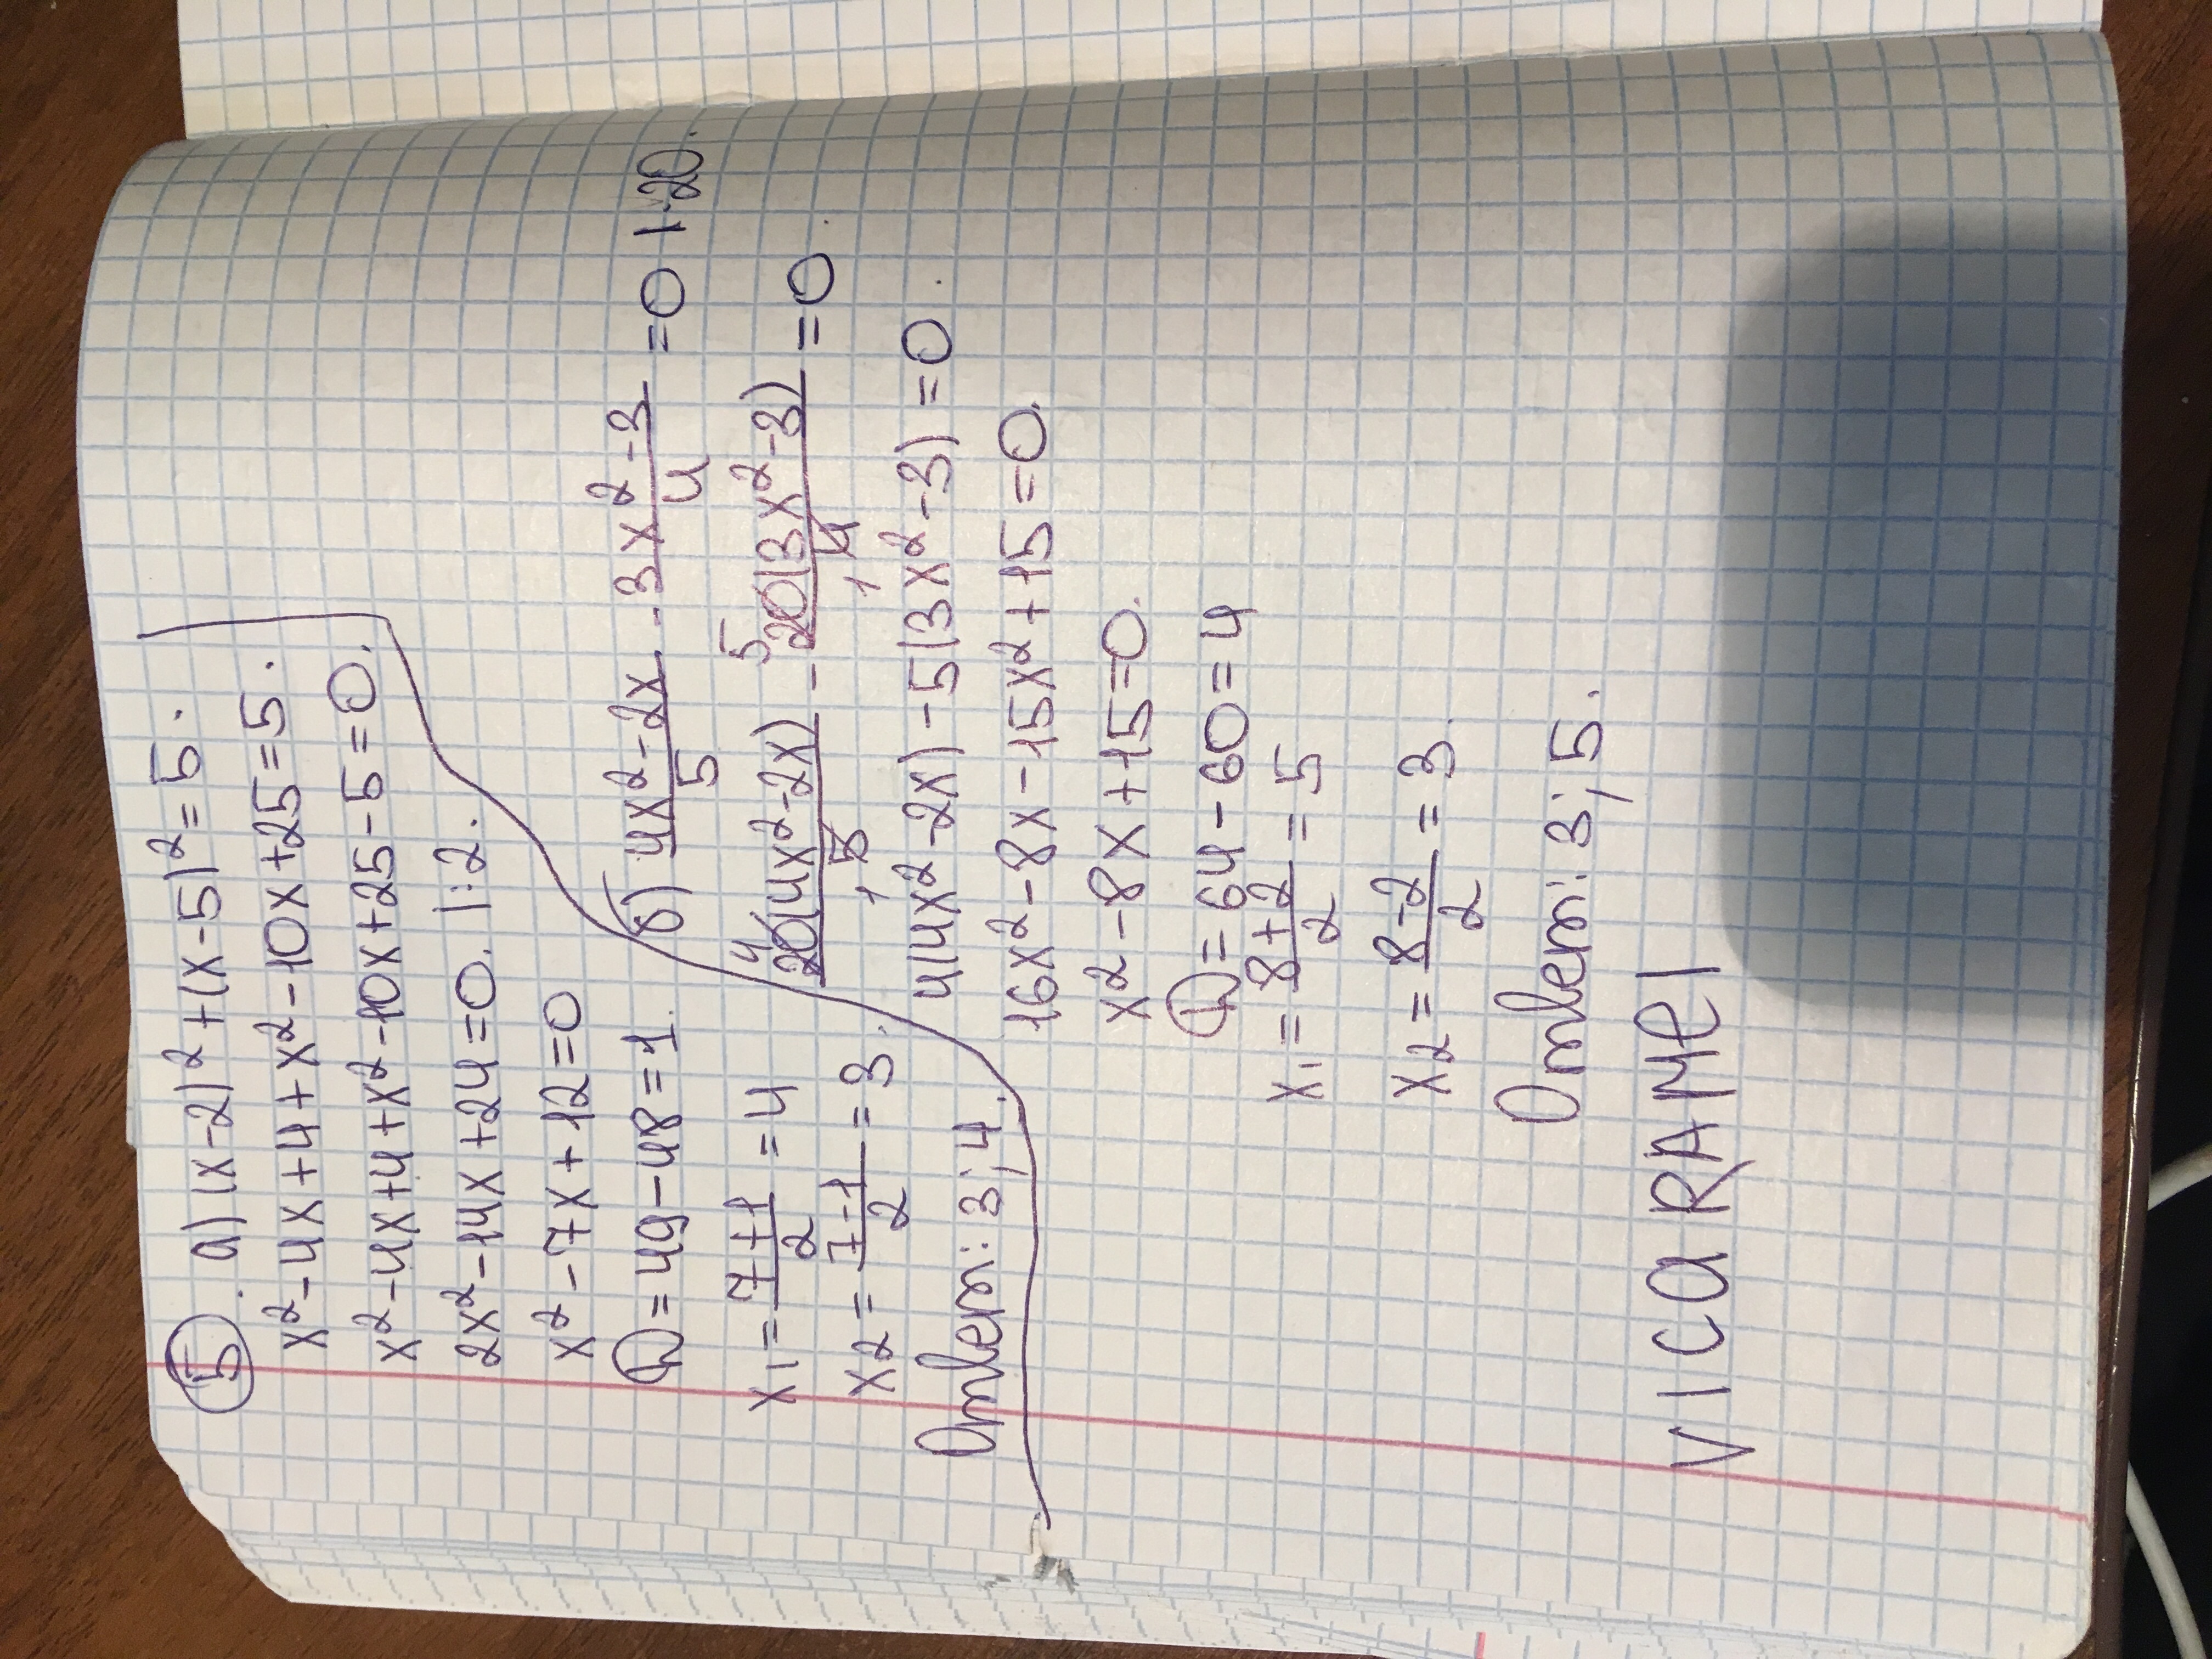 5. а) (x-2)²+(x-5)²=5.
x²-4x+4+x²-10x+25=5.
x²-4x+4+x²-10x+25-5=0.
2x²-14x+24=0. |:2.
x²-7x+12=0
D=49-48=1.
x₁=\frac{7+1}{2}=4
x₂=\frac{7-1}{2}=3.
Ответ: 3; 4.
б) \frac{4x²-2x}{5}-\frac{3x²-3}{4}=0 |·20.
\frac{20(4x²-2x)}{5}-\frac{20(3x²-3)}{4}=0.
4(4x²-2x)-5(3x²-3)=0.
16x²-8x-15x²+15=0.
x²-8x+15=0.
D=64-60=4
x₁=\frac{8+2}{2}=5
x₂=\frac{8-2}{2}=3.
Ответ: 3; 5.